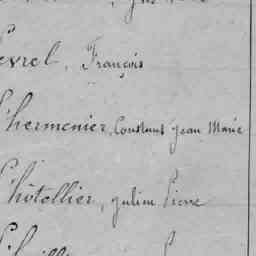 evrel, François
L'hermenier, Constant Jean Marie
L'hôtellier, Julien Pierre